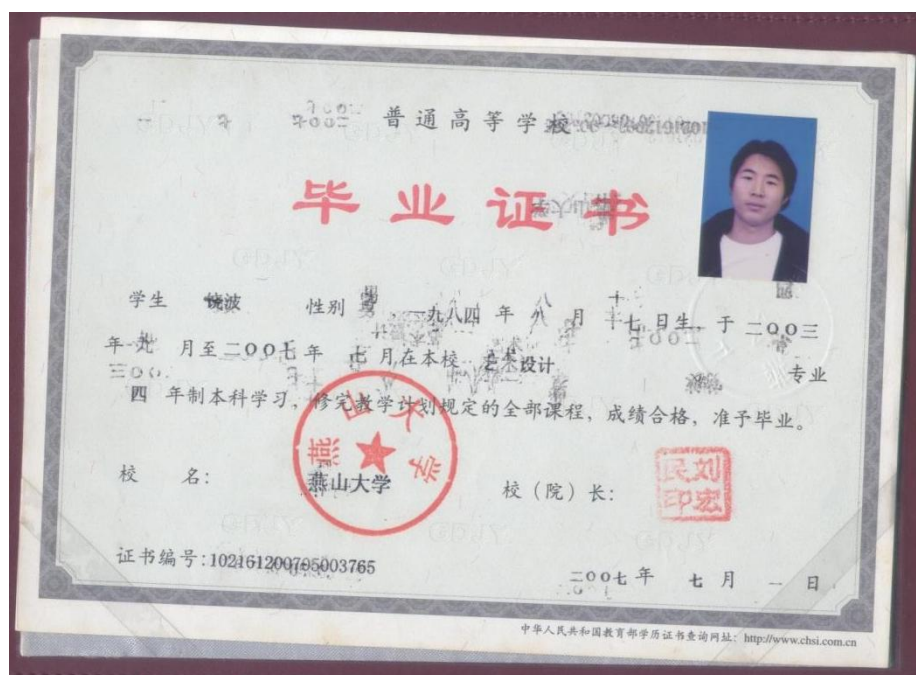 普通高等学校
毕业证书
学生 饶波 性别 一九八四 年 八 月 十七 日生, 于 二〇〇三
年 九 月至 二〇〇七 年 七 月在本校 艺术设计 专业
四 年制本科学习, 修完教学计划规定的全部课程, 成绩合格, 准予毕业。
燕山大学
校 名: 燕山大学 校（院）长: 刘宏民印
证书编号:102161200705003765
二〇〇七 年 七 月 一 日
中华人民共和国教育部学历证书查询网址: http://www.chsi.com.cn